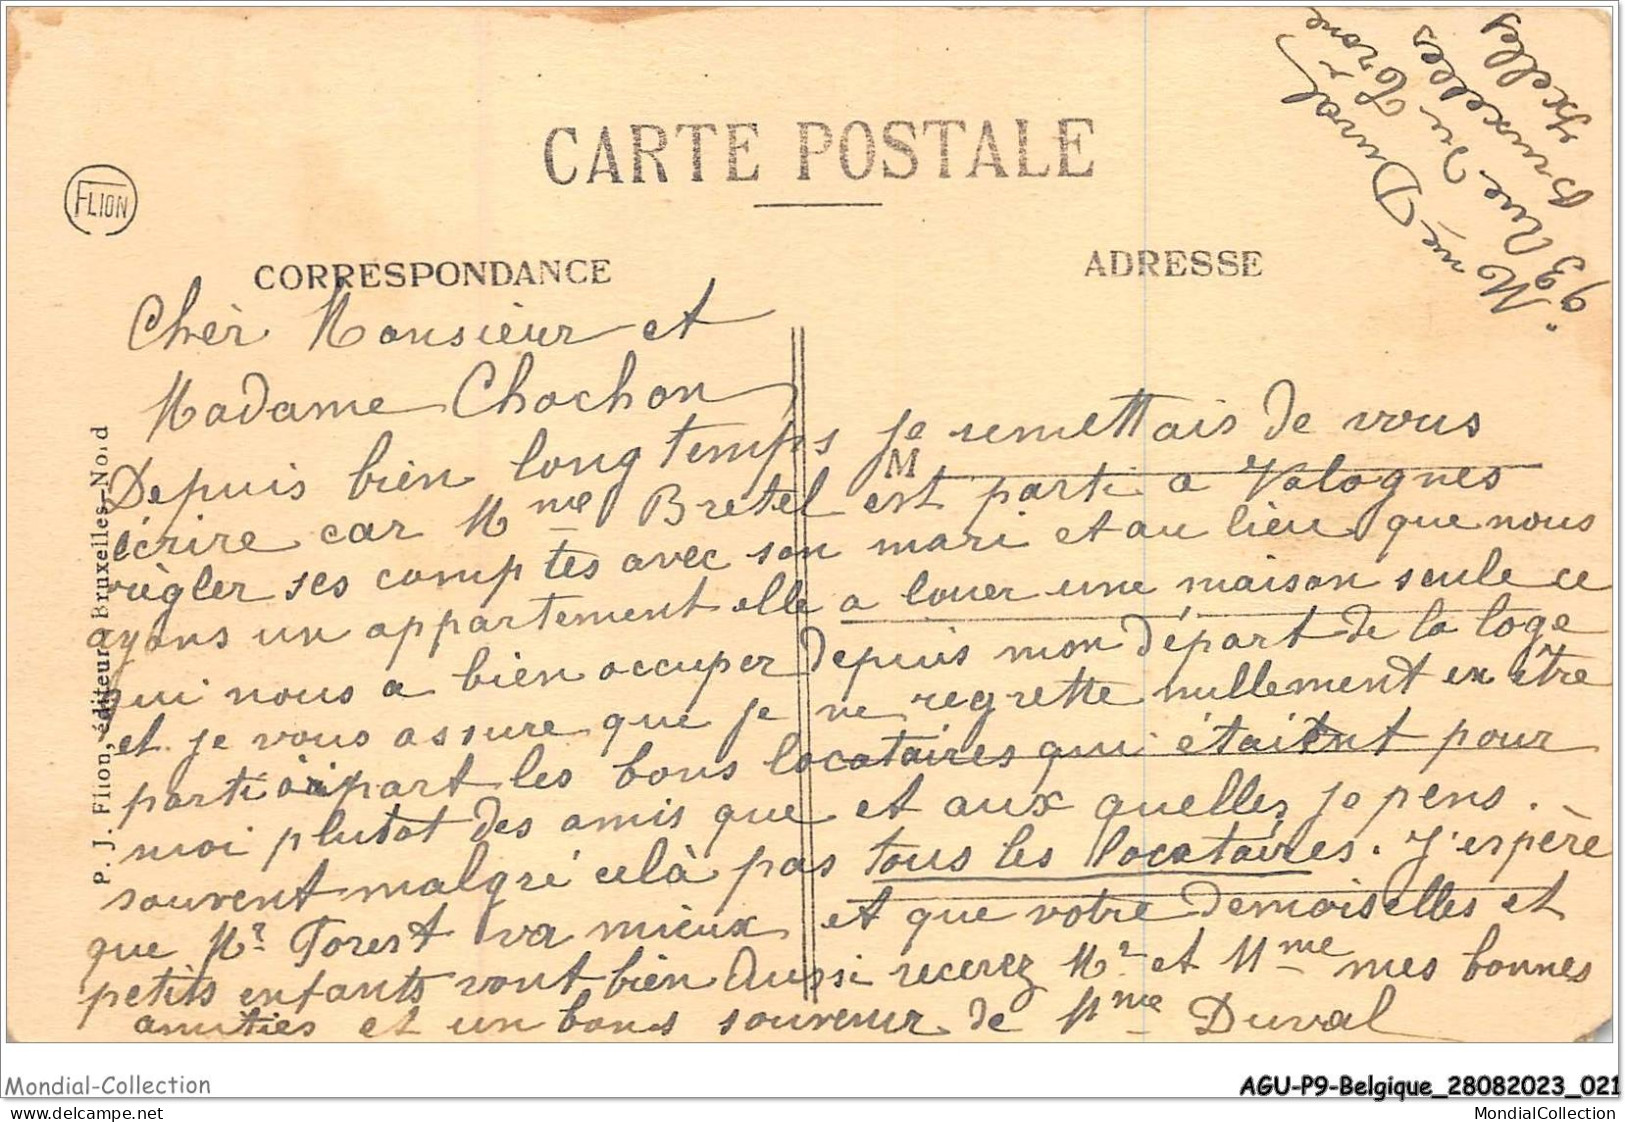 Mme Duval
93 Rue du Trône
Bruxelles
Ixelles
CARTE POSTALE
FLION
CORRESPONDANCE
ADRESSE
P. J. Flion, éditeur Bruxelles-No.d
M
Chèr Monsieur et
Madame Chochon
Depuis bien longtemps je remettais de vous
écrire car Mme Bretel est parti a Valognes
règler ses comptes avec son mari et au lieu que nous
ayons un appartement elle a louer une maison seule ce
qui nous a bien occuper depuis mon départ de la loge
et je vous assure que je ne regrette nullement en être
parti à part les bons locataires qui étaient pour
moi plutot des amis que et aux quelles je pens.
souvent malgré celà pas tous les locataires. J'espère
que Mr Torest va mieux et que votre demoiselles et
petits enfants vont bien Aussi recerez Mr et Mme mes bonnes
amities et un bons souvenir de Mme Duval
Mondial-Collection
AGU-P9-Belgique_28082023_021
delcampe.net
MondialCollection